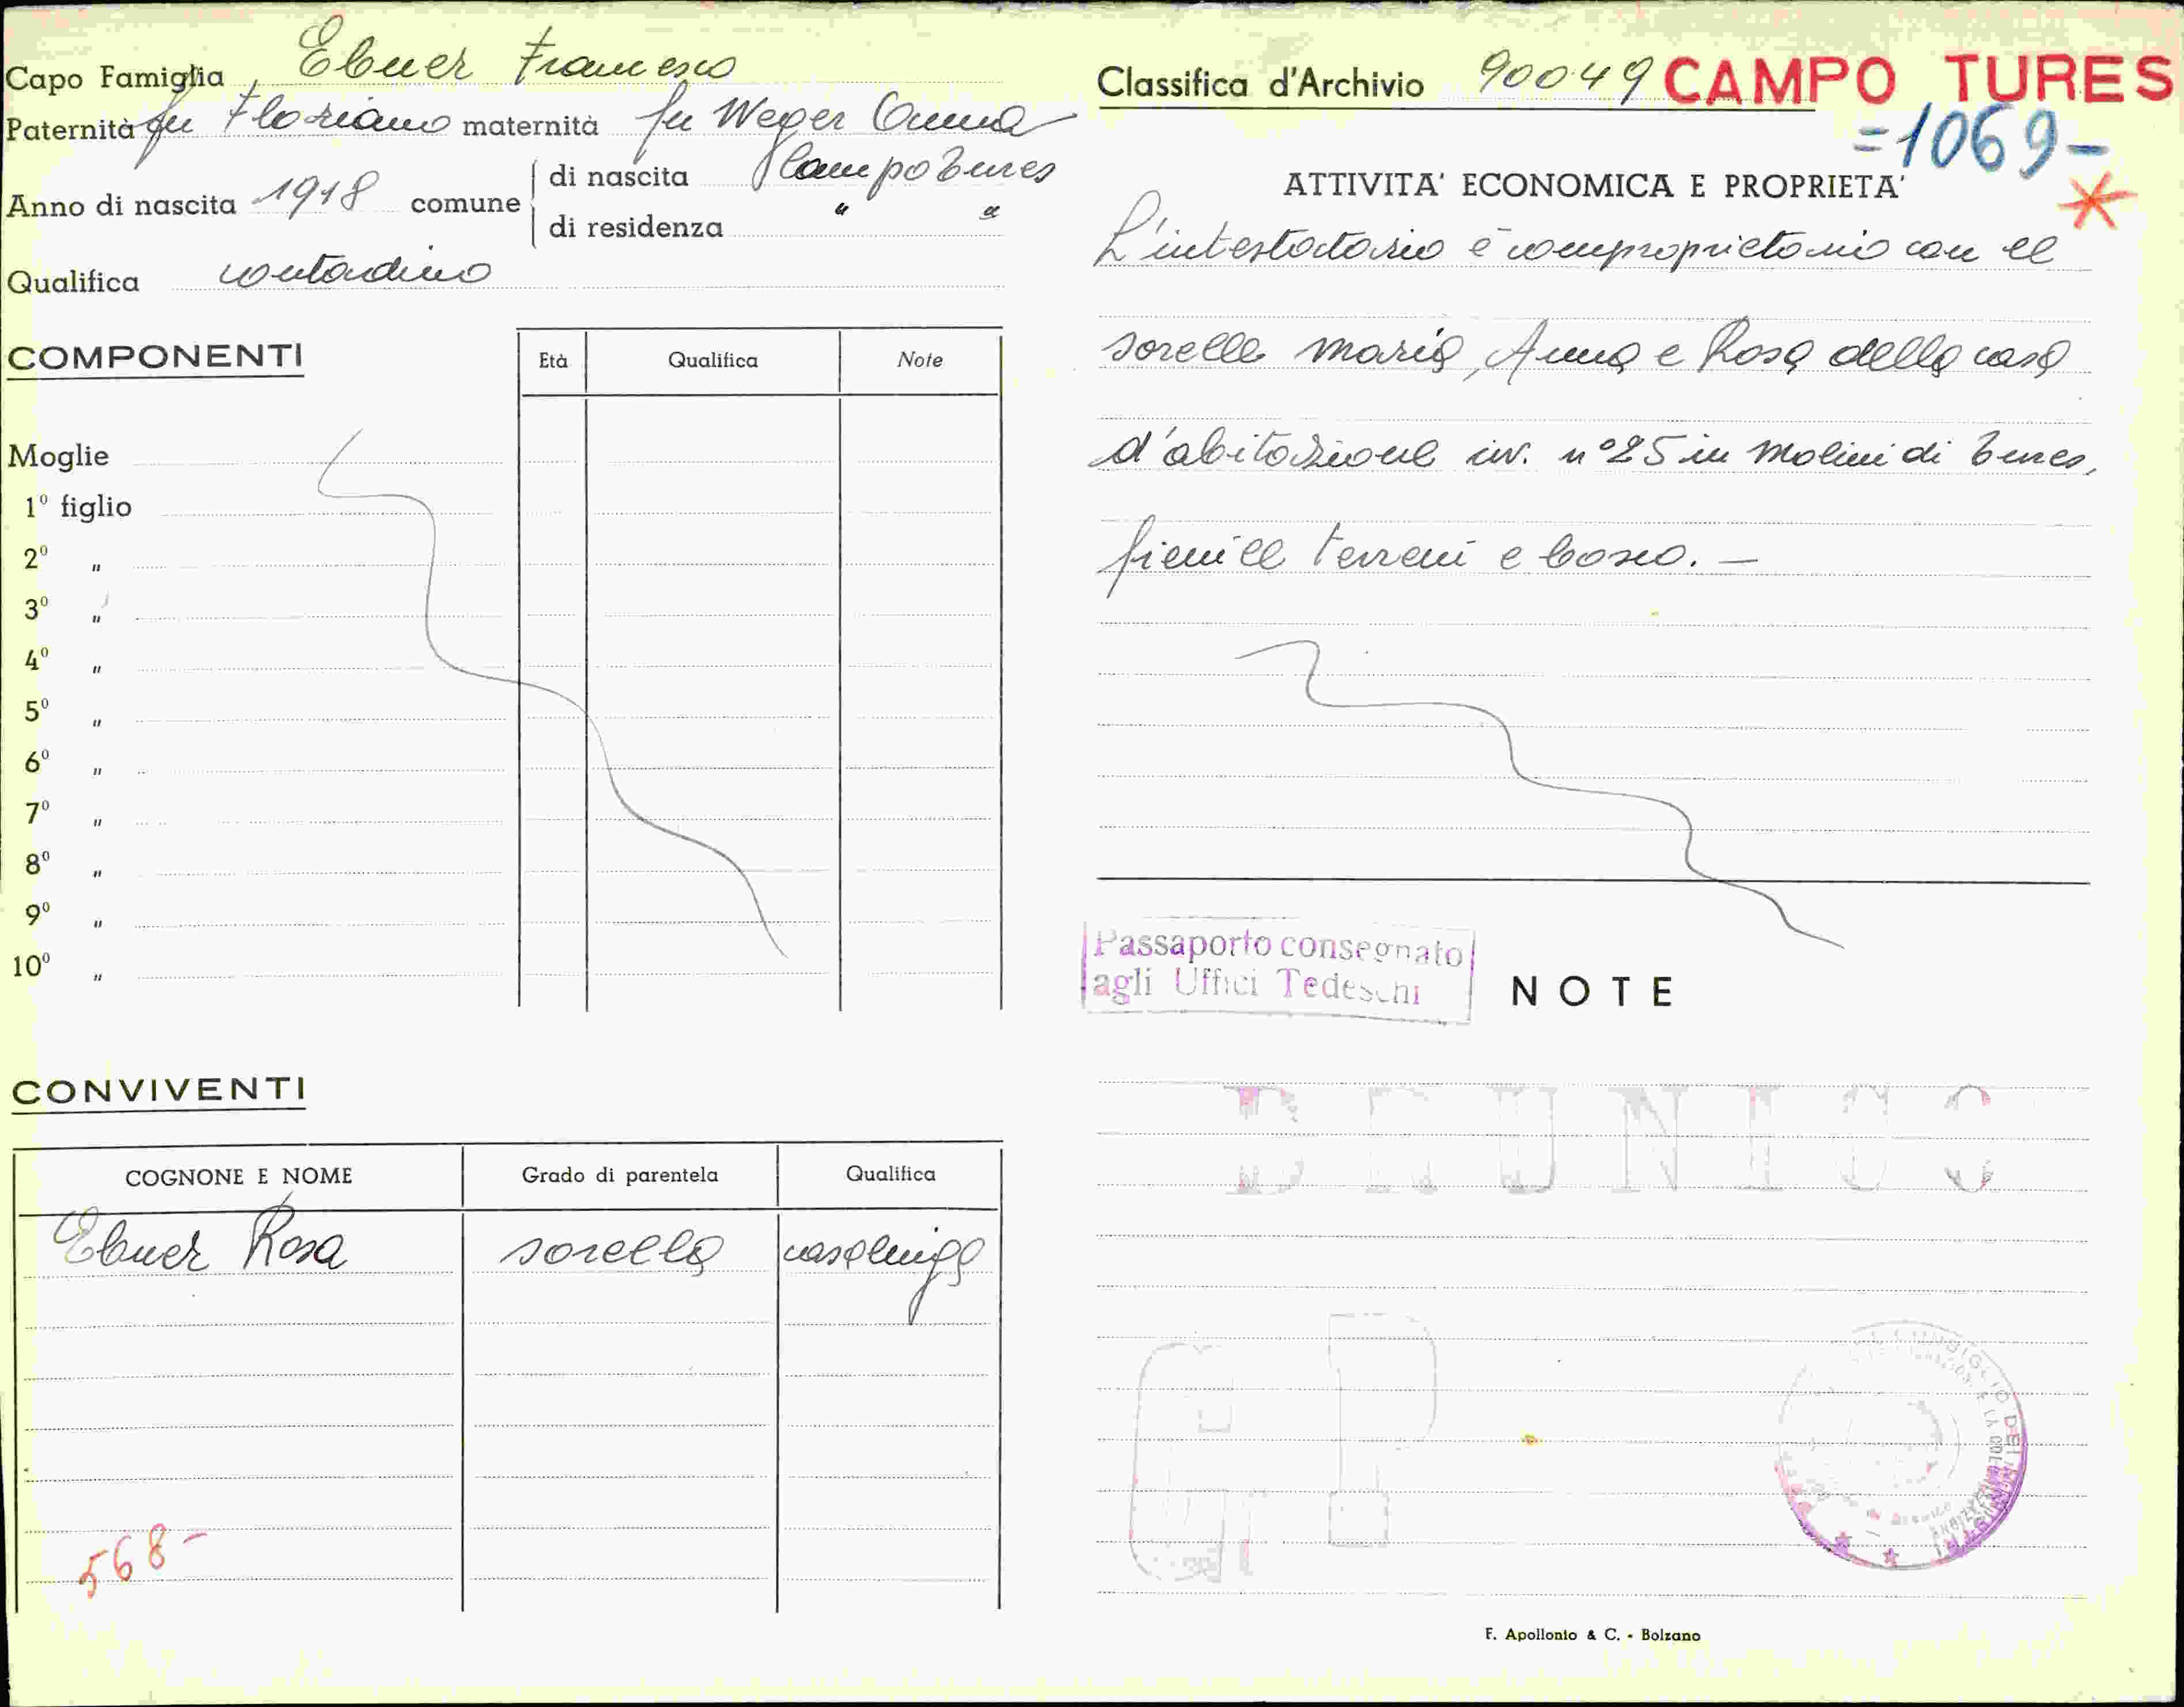 Capo Famiglia Ebner Francesco
Paternità fu Floriano maternità fu Weger Anna
Anno di nascita 1918 comune di nascita Campo Tures
di residenza " "
Qualifica contadino
COMPONENTI
Età Qualifica Note
Moglie
1º figlio
2º "
3º "
4º "
5º "
6º "
7º "
8º "
9º "
10º "
CONVIVENTI
COGNONE E NOME Grado di parentela Qualifica
Ebner Rosa sorella casalinga
568-
Classifica d'Archivio 90049 CAMPO TURES
=1069-
ATTIVITA' ECONOMICA E PROPRIETA'
L'intestatario è comproprietario con le
sorelle Maria, Anna e Rosa della casa
d'abitazione civ. nº 25 in Molini di Tures,
fienile terreni e bosco. —
Passaporto consegnato
agli Uffici Tedeschi
NOTE
BRUNICO
F. Apollonio & C. - Bolzano